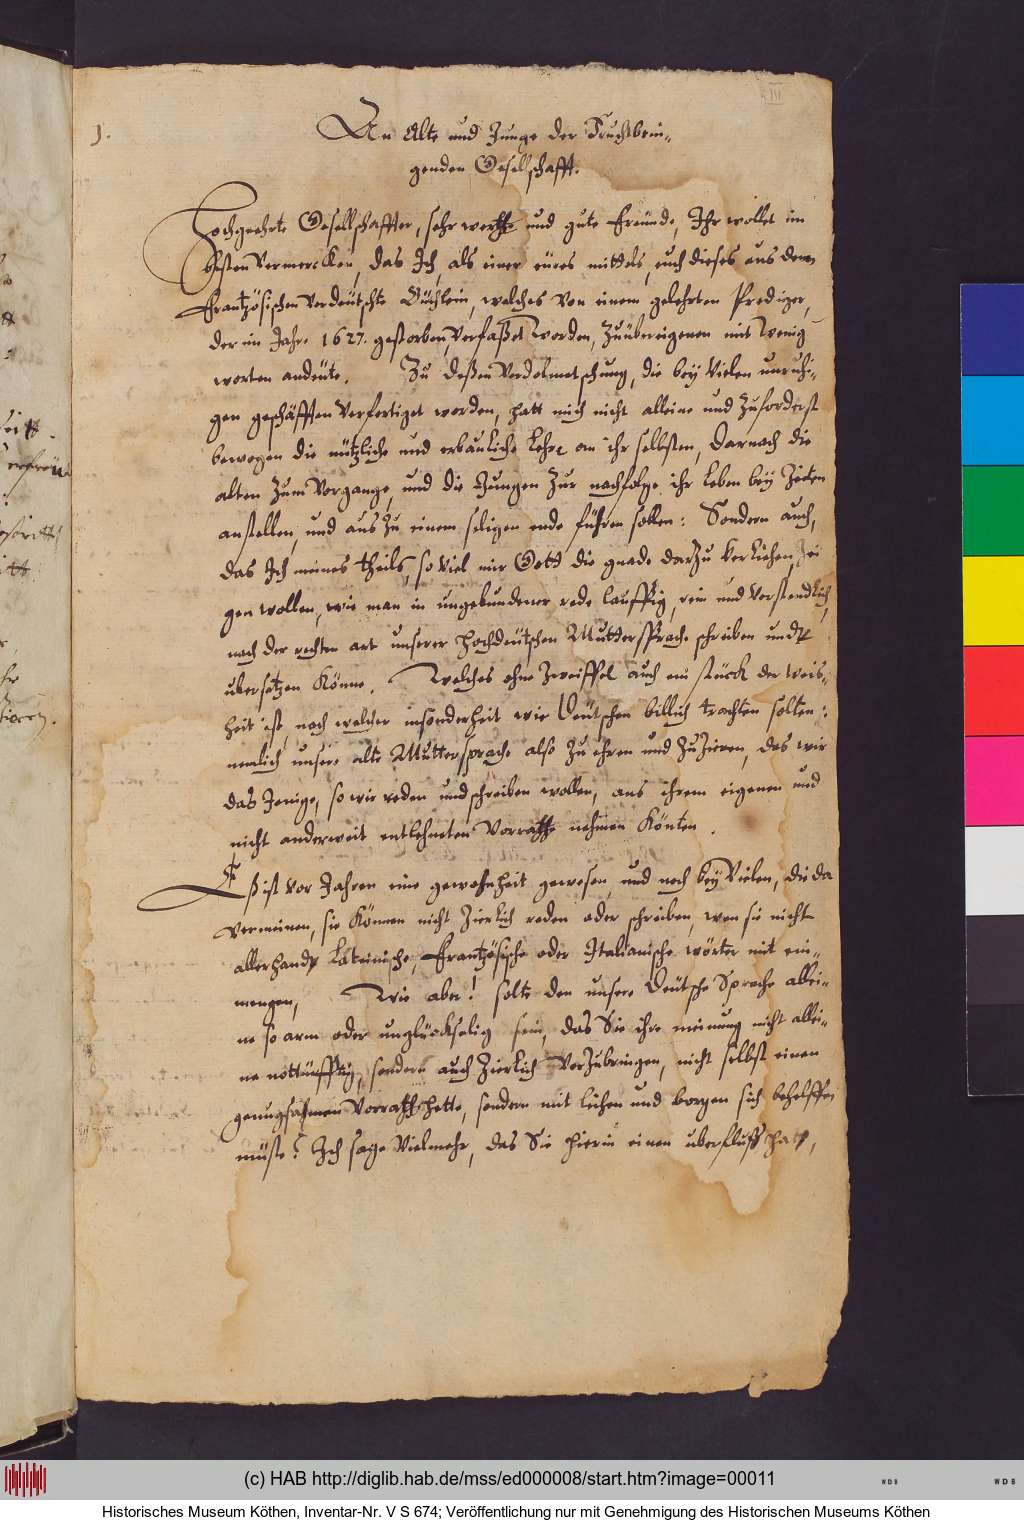 III
1.
An Alte und Junge der Fruchtbrin-
genden Gesellschafft.
Hochgeehrte Gesellschaffter, sehr werthe und gute Freünde, Ihr wollet im
besten vermercken, das Ich, als einer eüres mittels, euch dieses aus dem
Frantzösischen verdeütschte Büchlein, welches von einem gelehrten Prediger,
der im Jahre 1627. gestorben, verfaßet worden, zuübereigenen mit wenig
worten andeüte. Zu deßen Verdolmetschung, die bey vielen unruhi-
gen geschäfften verfertiget worden, hatt mich nicht alleine und zuforderst
bewogen die nützliche und erbauliche Lehre an ihr selbsten, Darnach die
alten zum Vorgange, und die Jungen zur nachfolge ihr leben bey Zeiten
anstellen, und aus zu einem seligen ende führen sollen: Sondern auch,
das Ich meines theils, so viel mir Gott die gnade darzu verliehen, zei
gen wollen, wie man in ungebundener rede lauffig, rein und verstendlich,
nach der rechten art unserer Hochdeütschen Muttersprache schreiben und
ubersetzen könne. Welches ohne Zweiffel auch ein stück der weis-
heit ist, nach welcher insonderheit wir Deütschen billich trachten solten:
nemlich unsere alte Muttersprache also zu ehren und zu Zieren, das wir
das Jenige, so wir reden und schreiben wollen, aus ihrem eigenen und
nicht anderweit entlehneten Vorrathe nehmen könten.
Eß ist vor Jahren eine gewohnheit gewesen, und noch bey vielen, die da
vermeinen, sie können nicht Zierlich reden oder schreiben, wen sie nicht
allerhand Lateinische, Frantzösische oder Italianische wörter mit ein-
mengen, Wie aber! solte den unsere Deütsche Sprache allei-
ne so arm oder unglückselig sein, das Sie ihre meinung nicht allei-
ne nottürfftig, sondern auch Zierlich vorzubringen, nicht selbst einen
genugsahmen Vorrath hette, sondern mit leihen und borgen sich behelffen
müste? Ich sage Vielmehr, das Sie hierin einen uberfluß hatt,
(c) HAB http://diglib.hab.de/mss/ed000008/start.htm?image=00011
WDB
WDB
Historisches Museum Köthen, Inventar-Nr. V S 674; Veröffentlichung nur mit Genehmigung des Historischen Museums Köthen